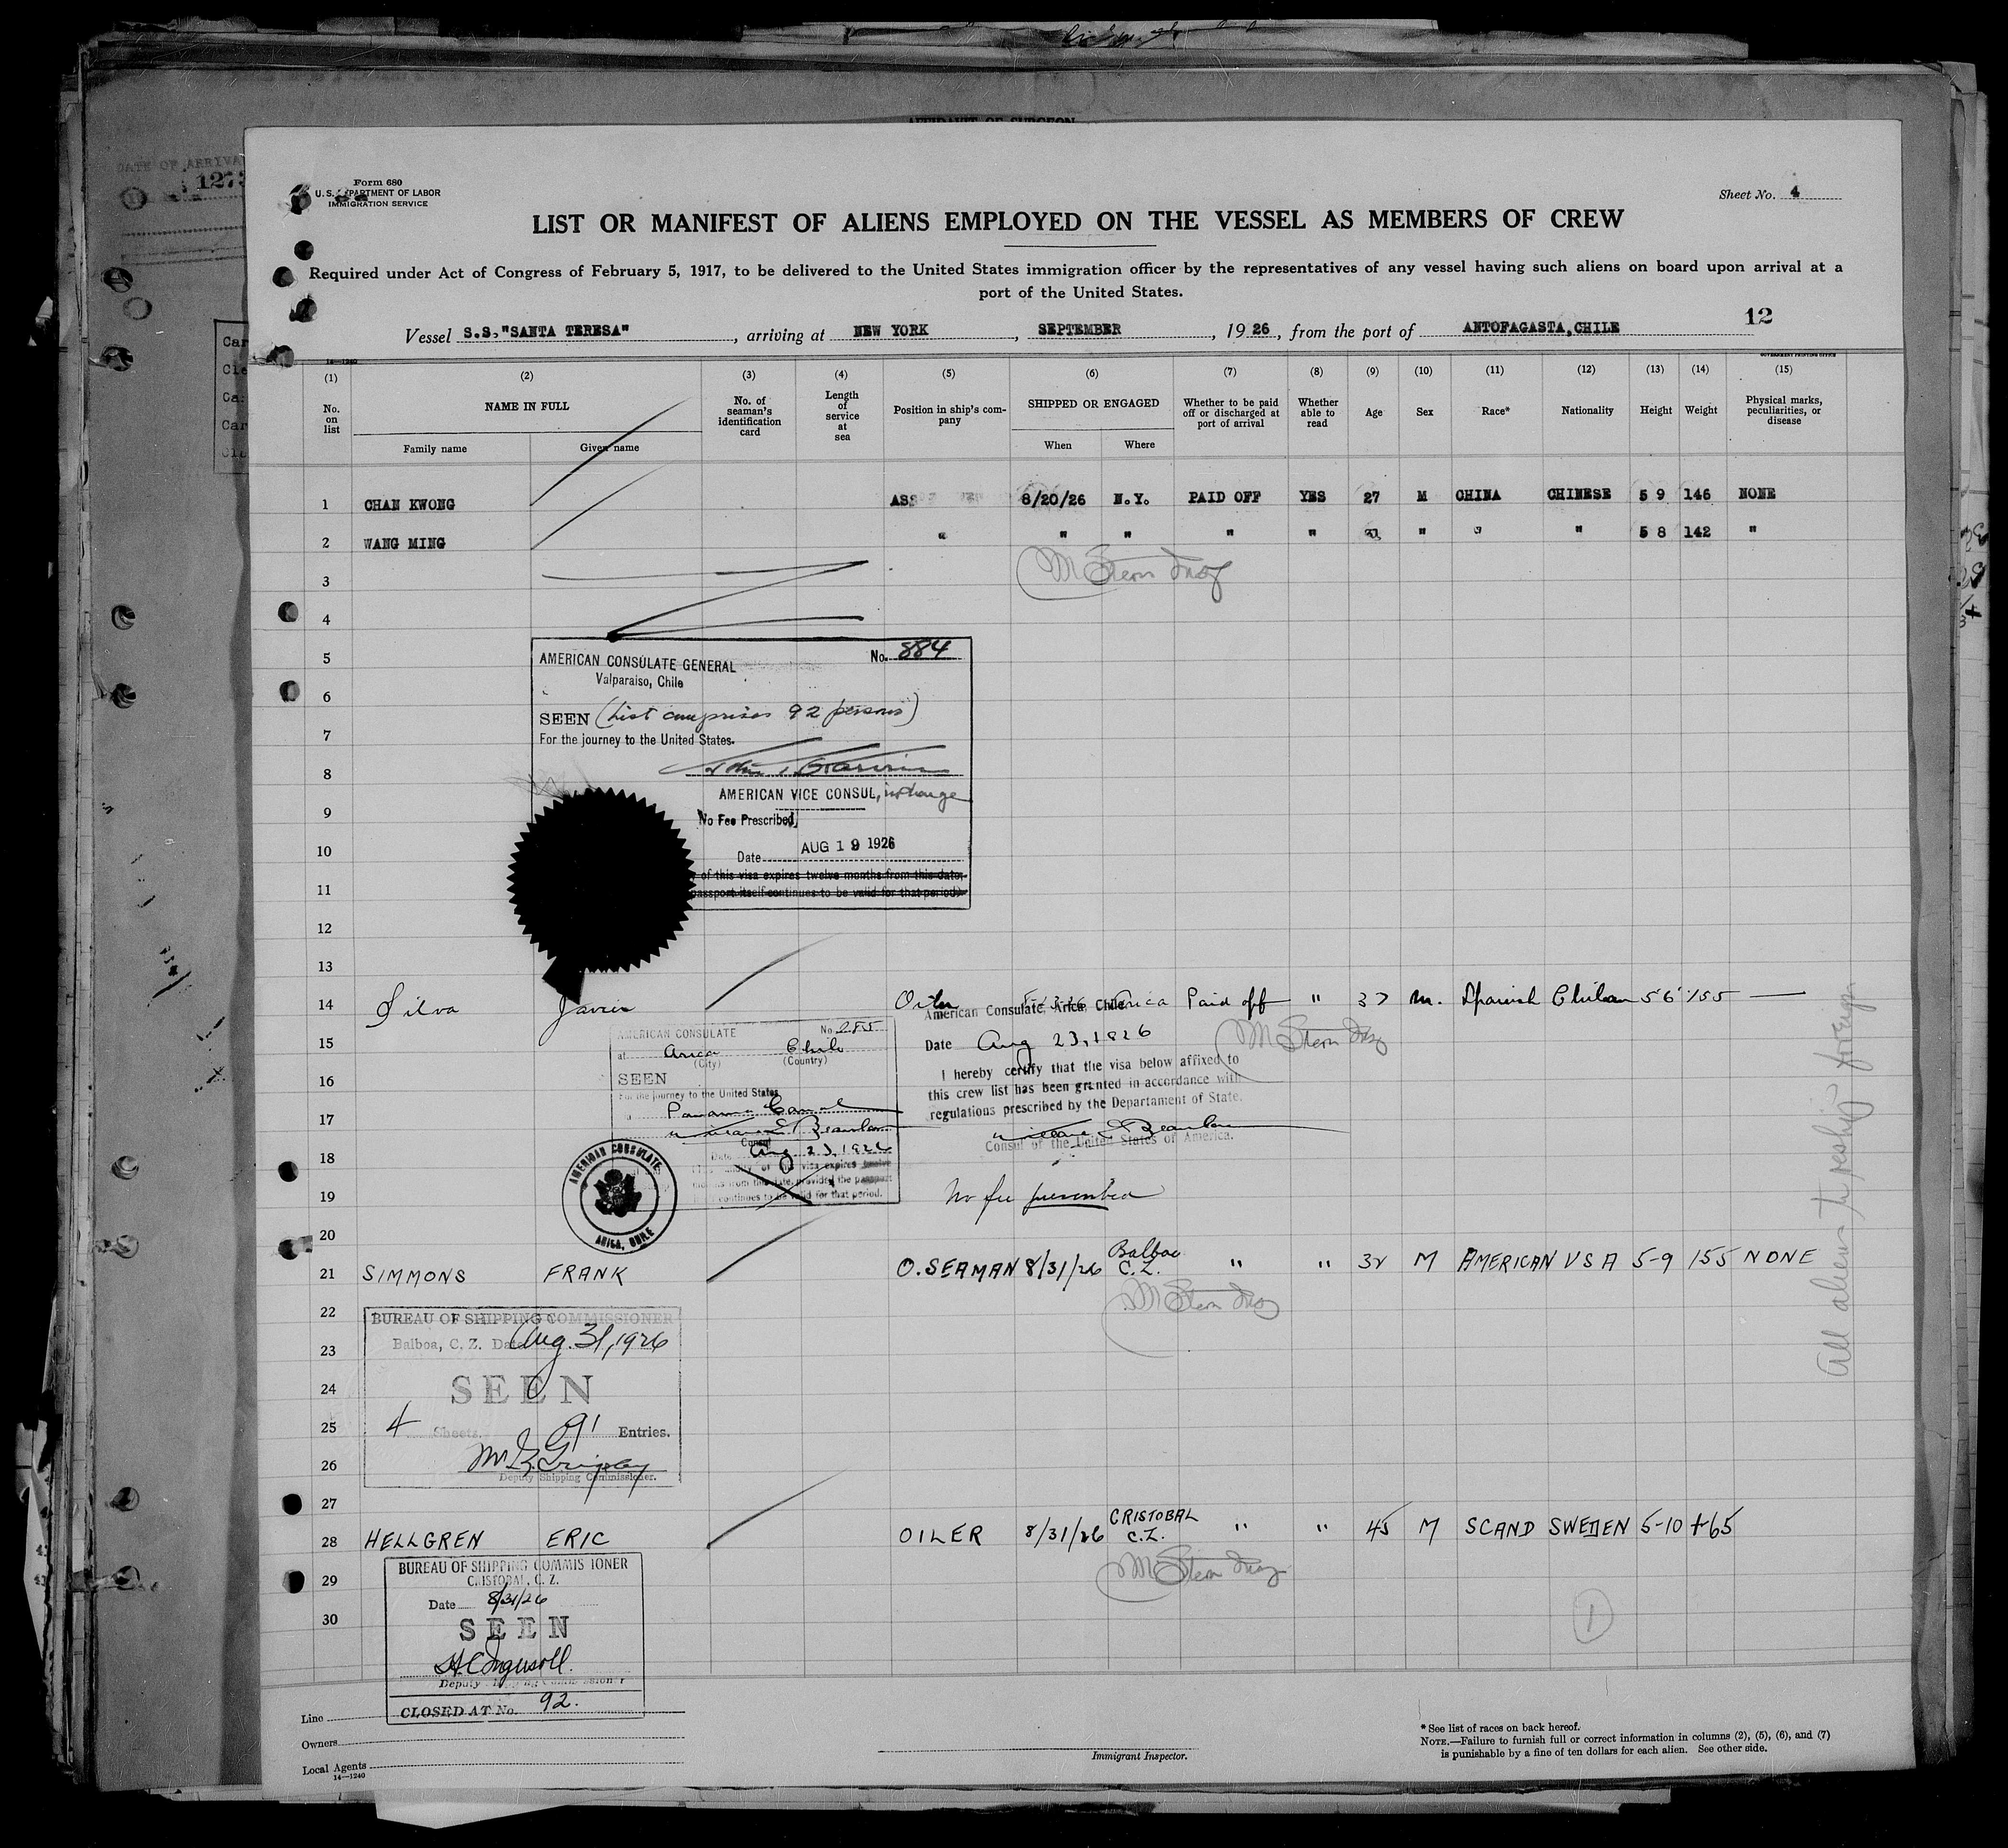 AFFIDAVIT OF SURGEON
DATE OF ARRIVA
127
Form 680
U. S. DEPARTMENT OF LABOR
IMMIGRATION SERVICE
Sheet No. 4
LIST OR MANIFEST OF ALIENS EMPLOYED ON THE VESSEL AS MEMBERS OF CREW
Required under Act of Congress of February 5, 1917, to be delivered to the United States immigration officer by the representatives of any vessel having such aliens on board upon arrival at a
port of the United States.
12
Vessel S.S."SANTA TERESA", arriving at NEW YORK, SEPTEMBER, 1926, from the port of ANTOFAGASTA, CHILE
14—1240
GOVERNMENT PRINTING OFFICE
(1) (2) (3) (4) (5) (6) (7) (8) (9) (10) (11) (12) (13) (14) (15)
No. on list
NAME IN FULL
Family name
Given name
No. of seaman's identification card
Length of service at sea
Position in ship's company
SHIPPED OR ENGAGED
When
Where
Whether to be paid off or discharged at port of arrival
Whether able to read
Age
Sex
Race*
Nationality
Height
Weight
Physical marks, peculiarities, or disease
1 CHAN KWONG 8/20/26 N.Y. PAID OFF YES 27 M CHINA CHINESE 5 9 146 NONE
2 WANG MING " " " " " " " " 5 8 142 "
M Stern Insp
3
4
5
6
7
8
9
10
11
12
13
AMERICAN CONSULATE GENERAL No. 884
Valparaiso, Chile
SEEN (List comprises 92 persons)
For the journey to the United States.
AMERICAN VICE CONSUL, in charge
No Fee Prescribed
Date AUG 19 1926
of this visa expires twelve months from this date,
passport itself continues to be valid for that period)
14 Silva Javier Oiler Arica Paid off " 37 M. Spanish Chilean 5 6 155 —
M Stern Insp
15
16
17
18
19
20
AMERICAN CONSULATE No. 285
at Arica Chile
(City) (Country)
SEEN
For the journey to the United States
Panama Canal
Consul
Date Aug 23, 1926
visa expires twelve
months from this date, provided the passport
continues to be valid for that period.
AMERICAN CONSULATE
ARICA, CHILE
American Consulate, Arica, Chile
Date Aug 23, 1926
I hereby certify that the visa below affixed to
this crew list has been granted in accordance with
regulations prescribed by the Departament of State.
Consul of the United States of America.
No fee prescribed
21 SIMMONS FRANK O. SEAMAN 8/31/26 Balboa C.Z. " " 32 M AMERICAN USA 5-9 155 NONE
M Stern Insp
22
23
24
25
26
27
BUREAU OF SHIPPING COMMISSIONER
Balboa, C. Z. Date Aug. 31, 1926
SEEN
4 Sheets. 91 Entries.
Deputy Shipping Commissioner.
28 HELLGREN ERIC OILER 8/31/26 CRISTOBAL C.Z. " " 45 M SCAND SWEDEN 5-10 165
M Stern Insp
29
30
BUREAU OF SHIPPING COMMISSIONER
CRISTOBAL, C. Z.
Date 8/31/26
SEEN
H C Ingersoll.
Deputy Shipping Commissioner
CLOSED AT No. 92.
1
Line
Owners
Local Agents
14—1240
Immigrant Inspector.
* See list of races on back hereof.
NOTE.—Failure to furnish full or correct information in columns (2), (5), (6), and (7)
is punishable by a fine of ten dollars for each alien. See other side.
All aliens to reship foreign